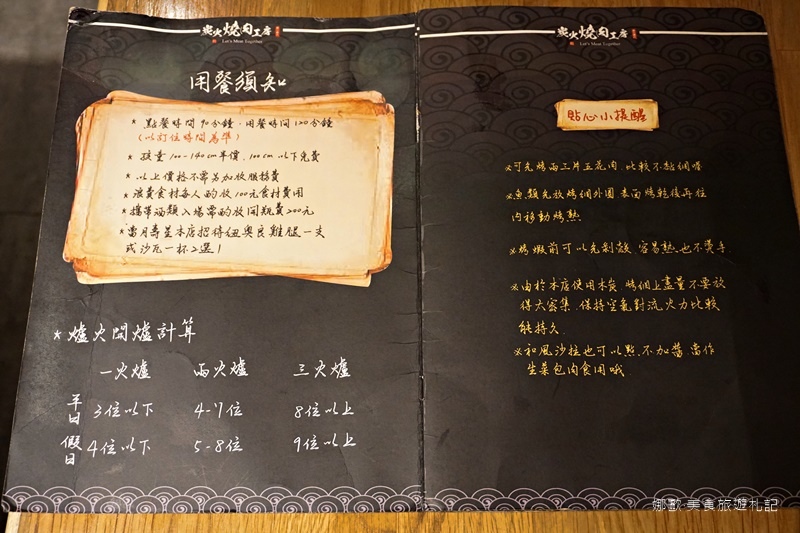 炭火燒肉工房
Let's Meat Together
用餐須知
* 點餐時間90分鐘．用餐時間120分鐘
(以訂位時間為準)
* 孩童100-140cm半價．100cm以下免費
* 以上價格不需另加收服務費
* 浪費食材每人酌收100元食材費用
* 攜帶酒類入場需酌收開瓶費200元
* 當月壽星本店招待紐奧良雞腿一支
或沙瓦一杯2選1
* 爐火開爐計算
一火爐 兩火爐 三火爐
平日 3位以下 4-7位 8位以上
假日 4位以下 5-8位 9位以上
炭火燒肉工房
Let's Meat Together
貼心小提醒
※可先烤兩三片五花肉．比較不黏網唷
※魚類先放烤網外圍 表面烤乾後再往
內移動烤熟
※烤蝦前可以先剝殼 容易熟也不燙手
※由於本店使用木炭 烤網上盡量不要放
得太密集．保持空氣對流火力比較
能持久
※和風沙拉也可以點不加醬．當作
生菜包肉食用哦
娜歐 美食旅遊札記